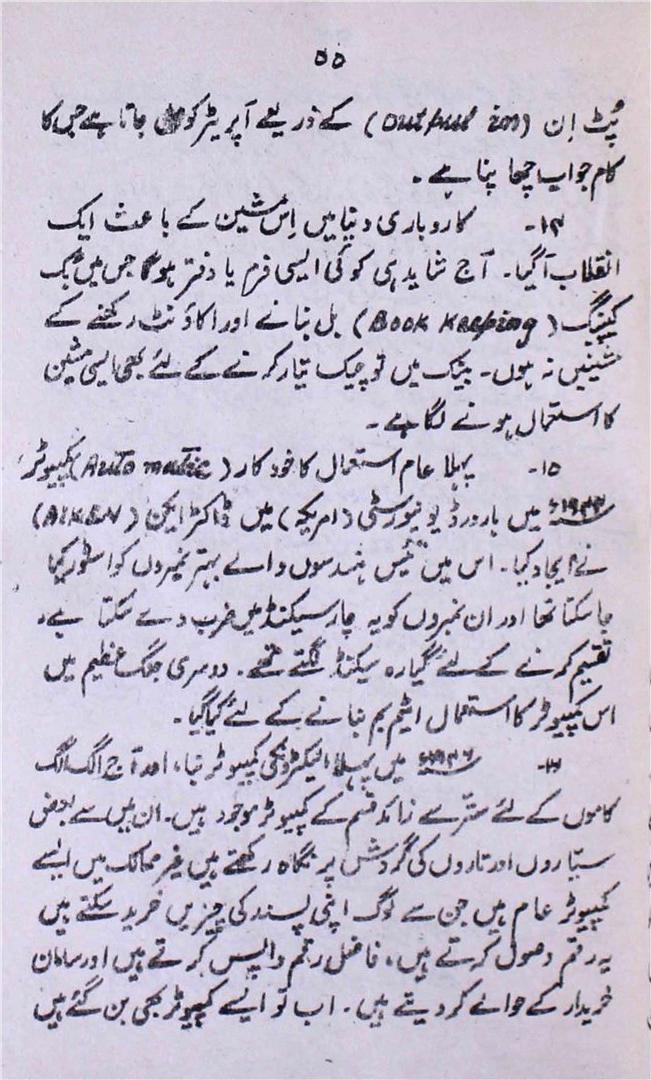 ۵۵
پُٹ اِن (Output in) کے ذریعے آپریٹر کو مل جاتا ہے جس کا
کام جواب چھاپنا ہے۔
۱۴۔ کاروباری دنیا میں اِس مشین کے باعث ایک
انقلاب آگیا۔ آج شاید ہی کوئی ایسی فرم یا دفتر ہوگا جس میں بُک
کیپنگ (Book Keeping) بل بنانے اور اکاؤنٹ رکھنے کے
مشینیں نہ ہوں۔ بینک میں تو چیک تیار کرنے کے لئے بھی ایسی مشین
کا استعمال ہونے لگا ہے۔
۱۵۔ پہلا عام استعمال کا خود کار (Automatic) کمپیوٹر
میں ہارورڈ یونیورسٹی (امریکہ) میں ڈاکٹر ایکن (AIKEN)
نے ایجاد کیا۔ اس میں تئیس ہندسوں والے بہتر نمبروں کو اسٹور کیا
جا سکتا تھا اور ان نمبروں کو یہ چار سیکنڈ میں ضرب دے سکتا ہے،
تقسیم کرنے کے لئے گیارہ سیکنڈ لگتے تھے۔ دوسری جنگ عظیم میں
اس کمپیوٹر کا استعمال ایٹم بم بنانے کے لئے کیا گیا۔
۱۶۔ ۱۹۴۶ء میں پہلا الیکٹرونکی کمپیوٹر بنا، اور آج الگ الگ
کاموں کے لئے ستّر سے زائد قسم کے کمپیوٹر موجود ہیں۔ ان میں سے بعض
سیّاروں اور تاروں کی گردش پر نگاہ رکھتے ہیں غیر ممالک میں ایسے
کمپیوٹر عام ہیں جن سے لوگ اپنی پسند کی چیزیں خرید سکتے ہیں
یہ رقم وصول کرتے ہیں، فاضل رقم واپس کرتے ہیں اور سامان
خریدار کے حوالے کر دیتے ہیں۔ اب تو ایسے کمپیوٹر بھی بن گئے ہیں